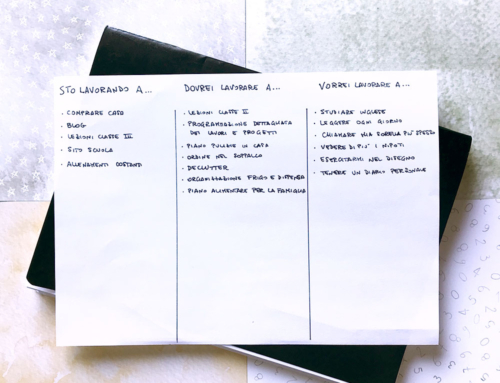 STO LAVORANDO A...
· COMPRARE CASA
· BLOG
· LEZIONI CLASSE III
· SITO SCUOLA
· ALLENAMENTI COSTANTI
DOVREI LAVORARE A...
· LEZIONI CLASSE II
· PROGRAMMAZIONE DETTAGLIATA
DEI LAVORI E PROGETTI
· PIANO PULIZIE IN CASA
· ORDINE NEL SOPPALCO
· DECLUTTER
· ORGANIZZAZIONE FRIGO E DISPENSA
· PIANO ALIMENTARE PER LA FAMIGLIA
VORREI LAVORARE A...
· STUDIARE INGLESE
· LEGGERE OGNI GIORNO
· CHIAMARE MIA SORELLA PIÙ SPESSO
· VEDERE DI PIÙ I NIPOTI
· ESERCITARMI NEL DISEGNO
· TENERE UN DIARIO PERSONALE